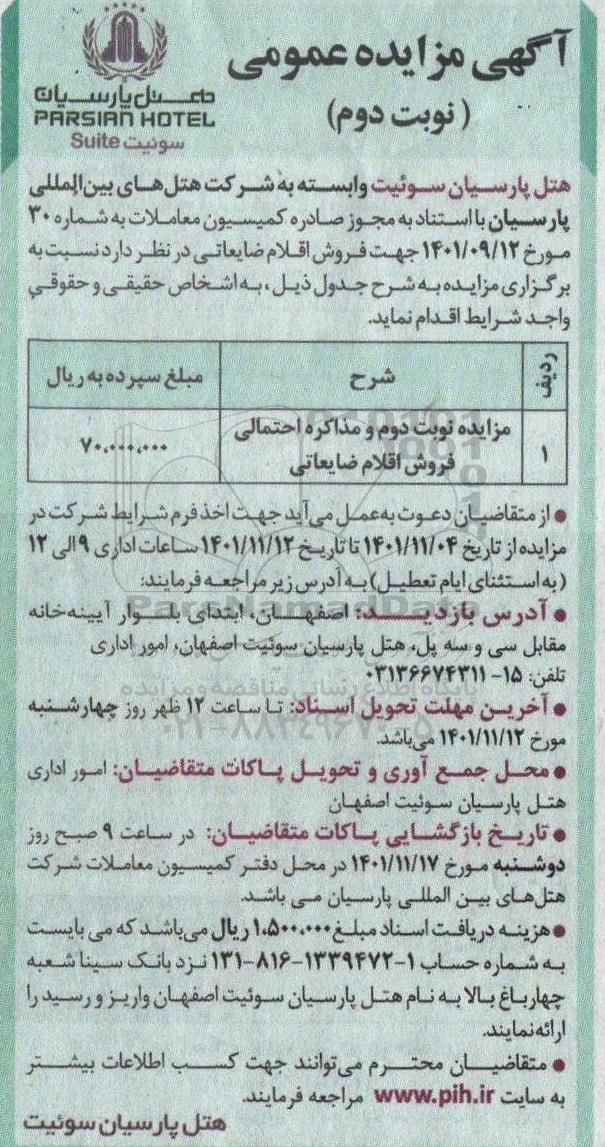 آگهی مزایده عمومی
(نوبت دوم)
هتل پارسیان
PARSIAN HOTEL
سوئیت Suite
هتل پارسیان سوئیت وابسته به شرکت هتل‌های بین‌المللی
پارسیان با استناد به مجوز صادره کمیسیون معاملات به شماره ۳۰
مورخ ۱۴۰۱/۰۹/۱۲ جهت فروش اقلام ضایعاتی در نظر دارد نسبت به
برگزاری مزایده به شرح جدول ذیل، به اشخاص حقیقی و حقوقی
واجد شرایط اقدام نماید.
ردیف شرح مبلغ سپرده به ریال
۱ مزایده نوبت دوم و مذاکره احتمالی
فروش اقلام ضایعاتی ۷۰،۰۰۰،۰۰۰
● از متقاضیان دعوت به عمل می‌آید جهت اخذ فرم شرایط شرکت در
مزایده از تاریخ ۱۴۰۱/۱۱/۰۴ تا تاریخ ۱۴۰۱/۱۱/۱۲ ساعات اداری ۹ الی ۱۲
(به استثنای ایام تعطیل) به آدرس زیر مراجعه فرمایند:
● آدرس بازدید: اصفهان، ابتدای بلوار آیینه‌خانه
مقابل سی و سه پل، هتل پارسیان سوئیت اصفهان، امور اداری
تلفن: ۱۵- ۰۳۱۳۶۶۷۴۳۱۱
● آخرین مهلت تحویل اسناد: تا ساعت ۱۲ ظهر روز چهارشنبه
مورخ ۱۴۰۱/۱۱/۱۲ می‌باشد.
● محل جمع آوری و تحویل پاکات متقاضیان: امور اداری
هتل پارسیان سوئیت اصفهان
● تاریخ بازگشایی پاکات متقاضیان: در ساعت ۹ صبح روز
دوشنبه مورخ ۱۴۰۱/۱۱/۱۷ در محل دفتر کمیسیون معاملات شرکت
هتل‌های بین المللی پارسیان می باشد.
● هزینه دریافت اسناد مبلغ ۱،۵۰۰،۰۰۰ ریال می‌باشد که می بایست
به شماره حساب ۱-۱۳۳۹۴۷۲-۸۱۶-۱۳۱ نزد بانک سینا شعبه
چهارباغ بالا به نام هتل پارسیان سوئیت اصفهان واریز و رسید را
ارائه نمایند.
● متقاضیان محترم می‌توانند جهت کسب اطلاعات بیشتر
به سایت www.pih.ir مراجعه فرمایند.
هتل پارسیان سوئیت
ParsNamadData
پایگاه اطلاع رسانی مناقصه و مزایده